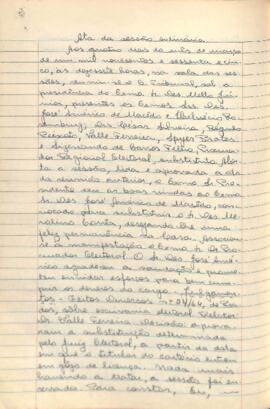 Ata da sessão ordinária
Aos quatro dias do mês de março
de um mil novecentos e sessenta e cin-
co, às dezessete horas, na sala das ses-
sões, reuniu-se o Tribunal, sob a
presidência do Exmo Sr. Des. Mello Jú-
nior, presentes os Exmos Srs. Des.
José Américo de Macêdo e
Drs. Costa Silveira,
Peixoto, Valle Ferreira,
e de Barros Filho, Procura-
dor Regional Eleitoral, substituto. Aber-
ta a sessão, lida e aprovada a ata
da reunião anterior, o Exmo Sr. Pre-
sidente deu as boas vindas ao Exmo
Sr. Des. José Américo de Macêdo, con-
vocado para substituir o Sr. Des. Me-
rolino Corrêa, desejando-lhe uma
feliz permanência na Casa. Associou-
se à manifestação o Exmo Sr. Dr. Pro-
curador Eleitoral. O Sr. Des. José Amé-
rico agradeceu a saudação e prome-
teu envidar esforços para bem cum-
prir os deveres do cargo. Julgamen-
tos - Feitos Diversos nº 04/64, de
sobre escrivania eleitoral. Relator
Dr. Valle Ferreira. Decisão: aprova-
ram a substituição determinada
pelo Juiz Eleitoral, a partir da data
em que o titular do cartório entrou
em gozo de licença. Nada mais
havendo a tratar, a sessão foi en-
cerrada. Para constar, eu,